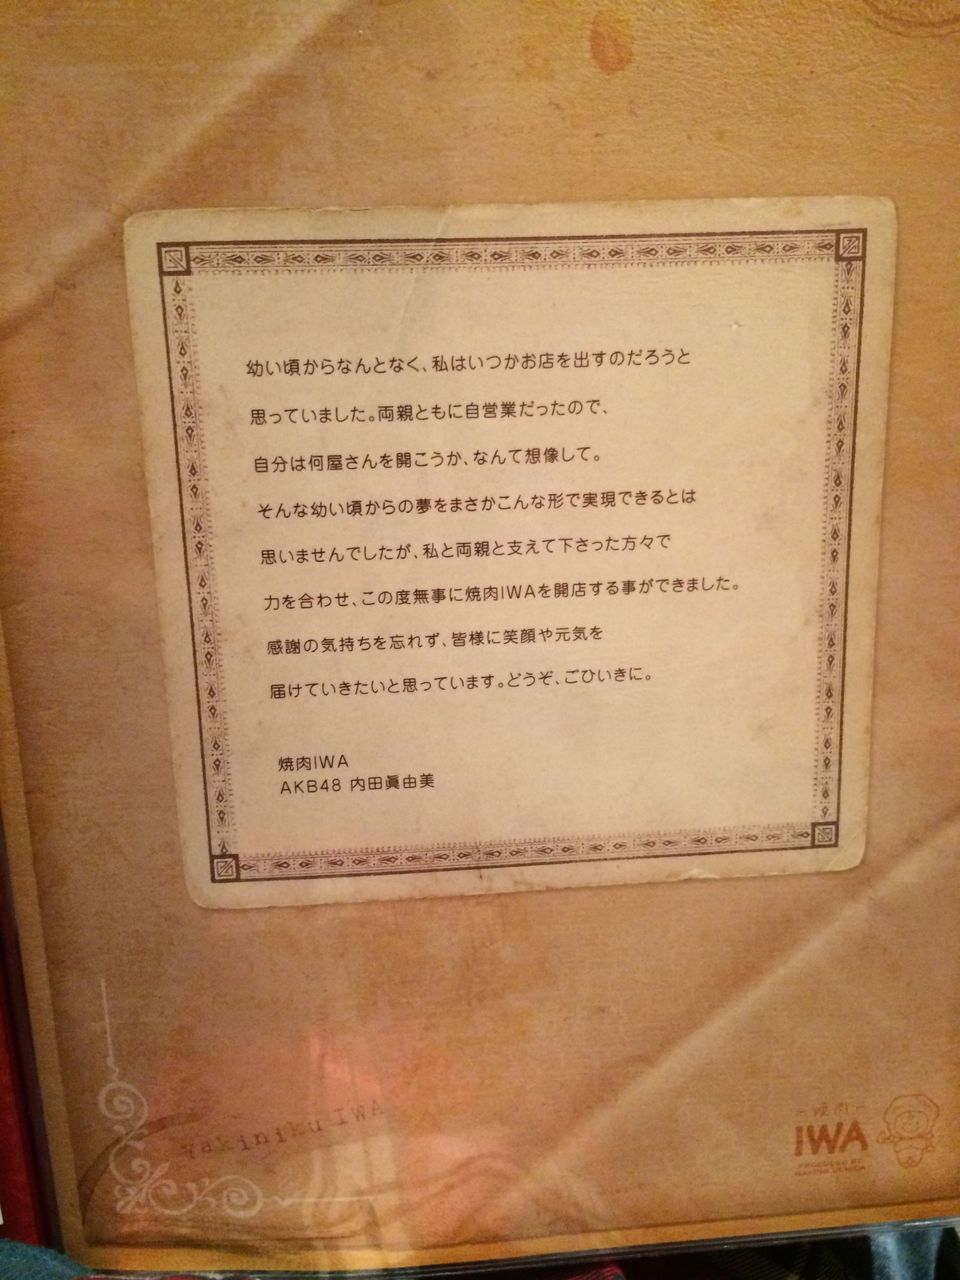 幼い頃からなんとなく、私はいつかお店を出すのだろうと
思っていました。両親ともに自営業だったので、
自分は何屋さんを開こうか、なんて想像して。
そんな幼い頃からの夢をまさかこんな形で実現できるとは
思いませんでしたが、私と両親と支えて下さった方々で
力を合わせ、この度無事に焼肉IWAを開店する事ができました。
感謝の気持ちを忘れず、皆様に笑顔や元気を
届けていきたいと思っています。どうぞ、ごひいきに。
焼肉IWA
AKB48 内田眞由美
Yakiniku IWA
焼肉
IWA
PRODUCED BY